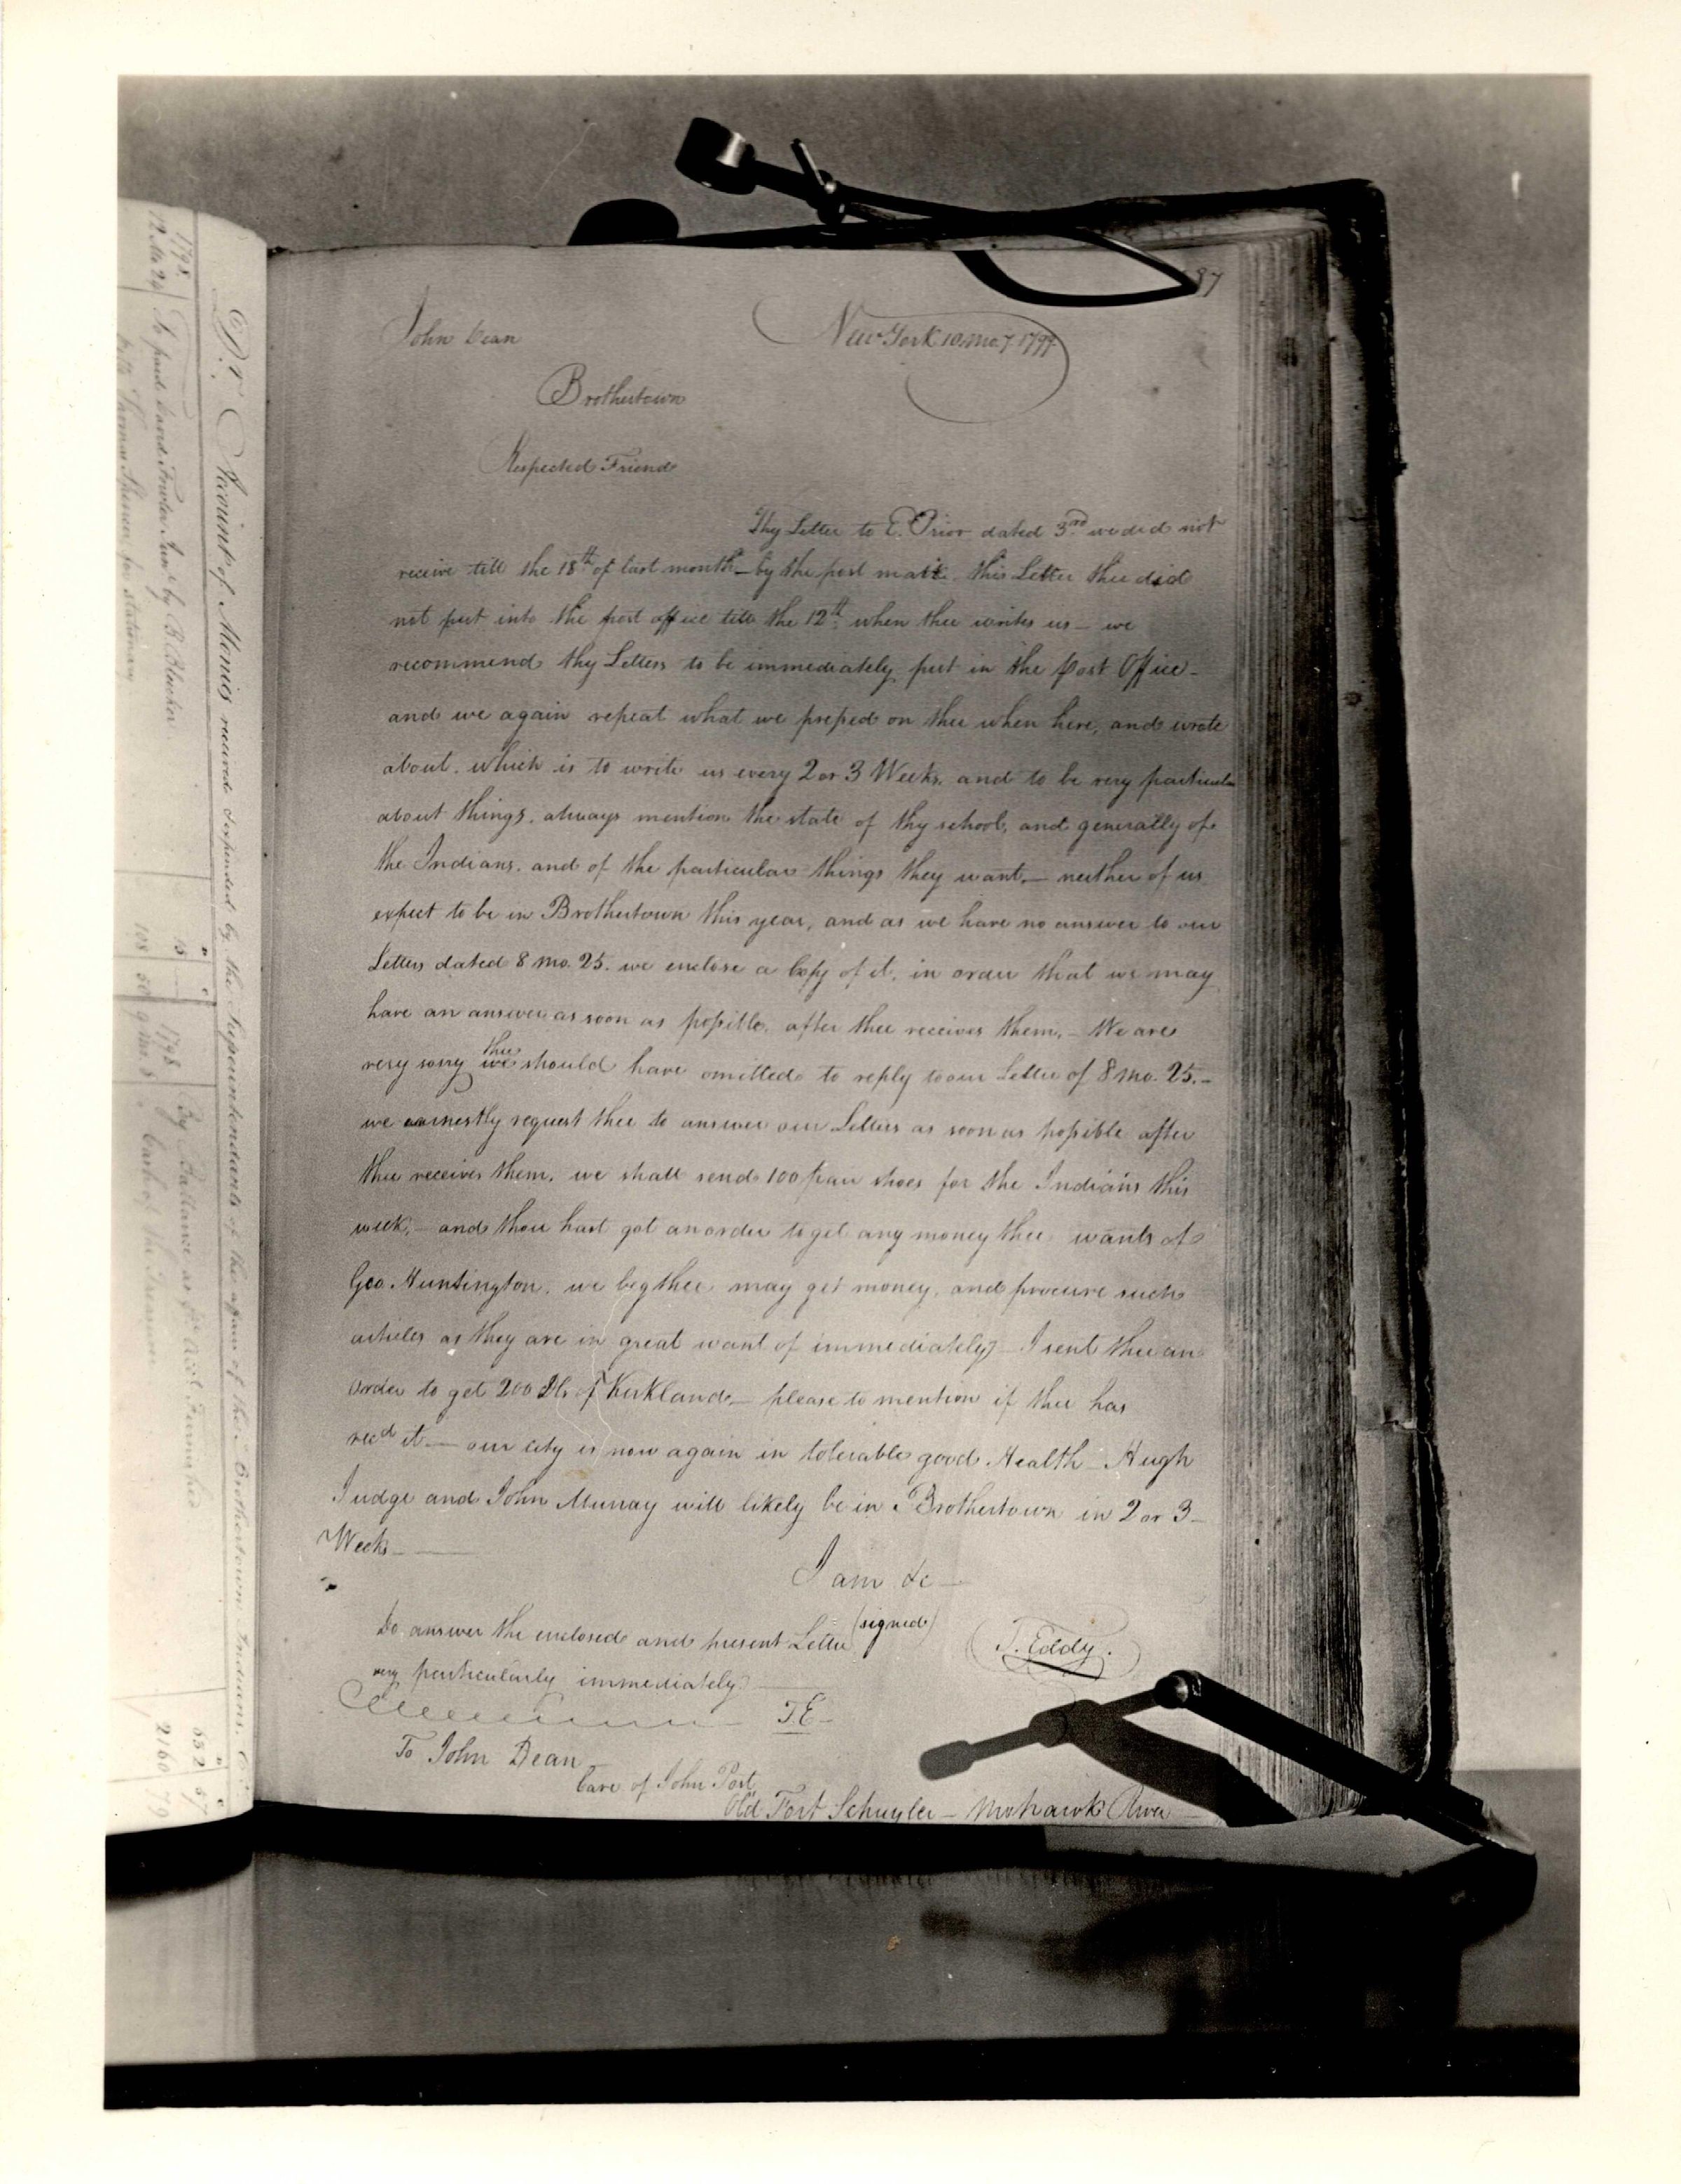 87
John Dean
New York 10 mo. 7. 1799
Brothertown
Respected Friend
Thy Letter to E. Prior dated 3rd we did not
receive till the 18th of last month – by the post mark this Letter thee did
not put into the post office till the 12th when thee writes us – we
recommend thy Letters to be immediately put in the post Office –
and we again repeat what we presed on thee when here, and wrote
about. which is to write us every 2 or 3 Weeks. and to be very particular
about things. always mention the state of thy school, and generally of
the Indians. and of the particular things they want. – neither of us
expect to be in Brothertown this year, and as we have no answer to our
Letters dated 8 mo. 25. we enclose a Copy of it. in order that we may
have an answer as soon as possible. after thee receives them. – We are
very sorry thee should have omitted to reply to our Letter of 8 mo. 25. –
we earnestly request thee to answer our Letters as soon as possible after
thee receives them. we shall send 100 pair shoes for the Indians this
week, – and thou hast got an order to get any money thee wants of
Geo. Huntington. we beg thee may get money, and procure such
articles as they are in great want of immediately – I sent thee an
order to get 200 Dls. of Kirkland – please to mention if thee has
recd it. – our city is now again in tolerable good Health – Hugh
Judge and John Murray will likely be in Brothertown in 2 or 3 –
Weeks –
I am &c –
Do answer the enclosed and present Letter (signed) T. Eddy.
very particularly immediately
T.E –
To John Dean –
Care of John Post
Old Fort Schuyler – Mohawk River
Dr Account of Monies received & expended by the Superintendants of the affairs of the Brothertown Indians. Cr
1798
12 Mo 24 To paid David Fowler Junr. by B. Blacker
15
108 50
1798
9 mo. 8
By Ballance as pr Acct Furnished
552 57
2160 79